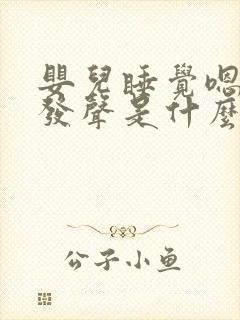 嬰兒睡覺嗯
發聲是什麼
公子小鱼